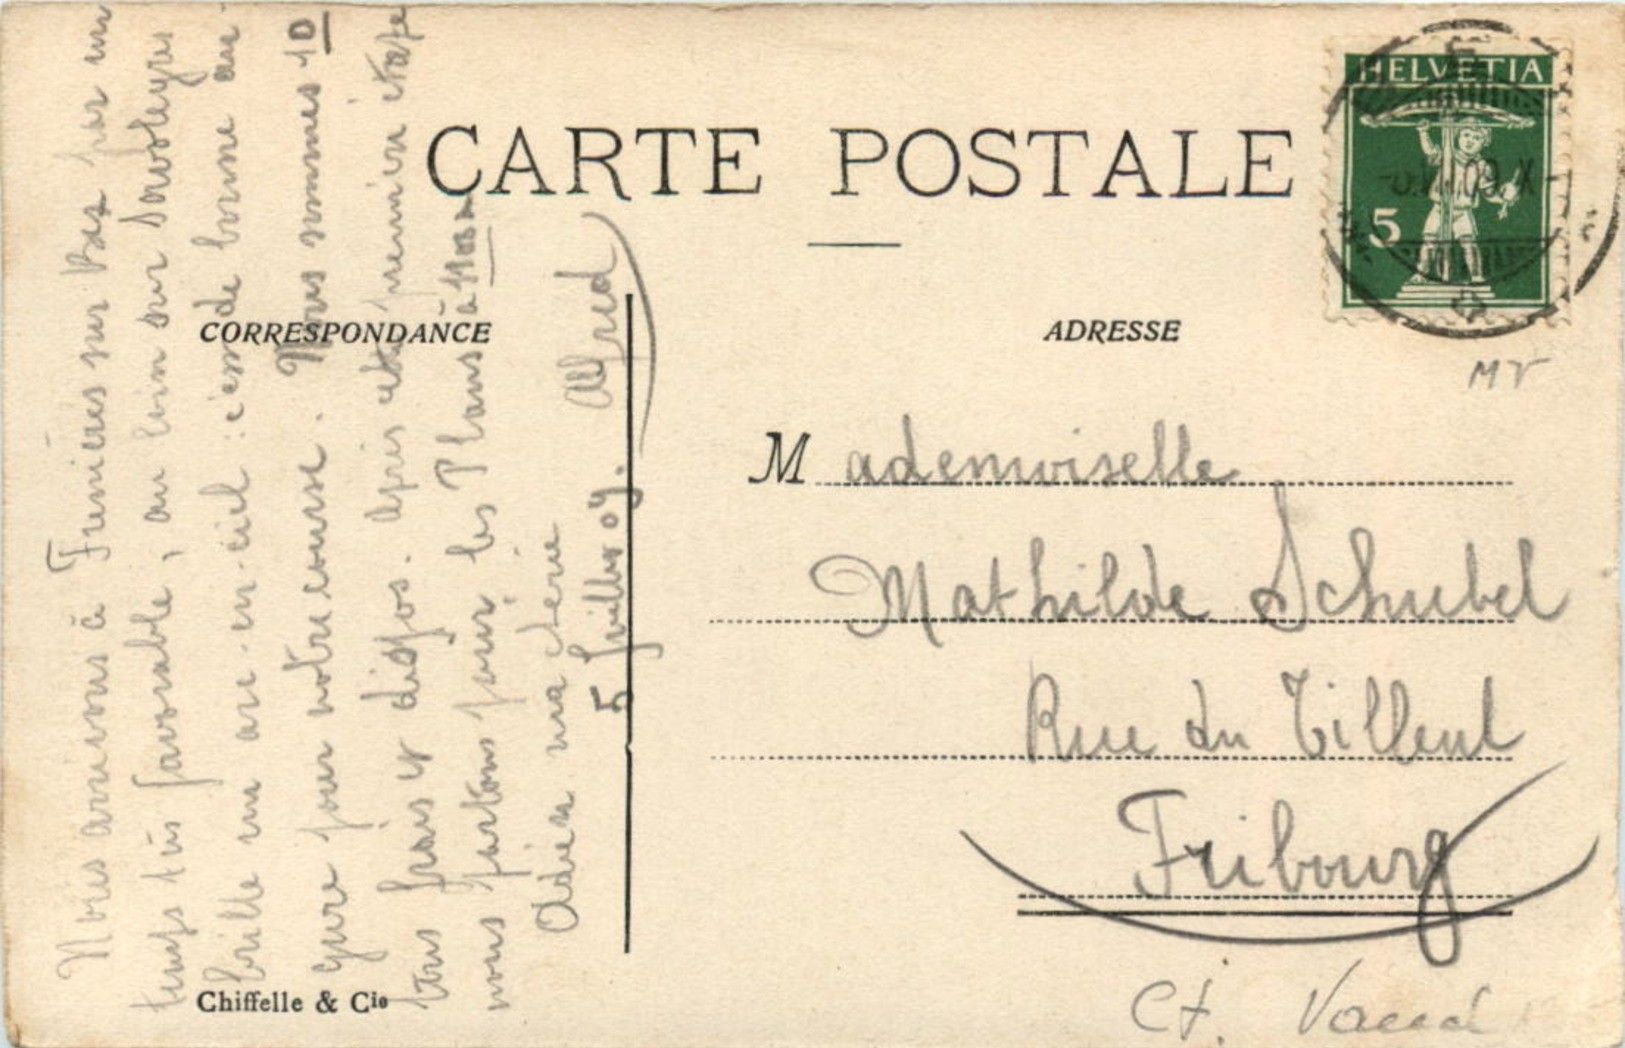 CARTE POSTALE
HELVETIA
5
CORRESPONDANCE
ADRESSE
Nous arrivons à Frenières sur Bex par un
temps très favorable, au loin sur
brille un arc-en-ciel : c'est de bonne au-
gure pour notre course. Nous sommes 10
tous frais et dispos. Après cette première étape
nous partons pour les Plans à
Adieu ma chérie
5 Juillet 09. Alfred
MV
Mademoiselle
Mathilde Schubel
Rue du Tilleul
Fribourg
Ct. Vaud
Chiffelle & Cie